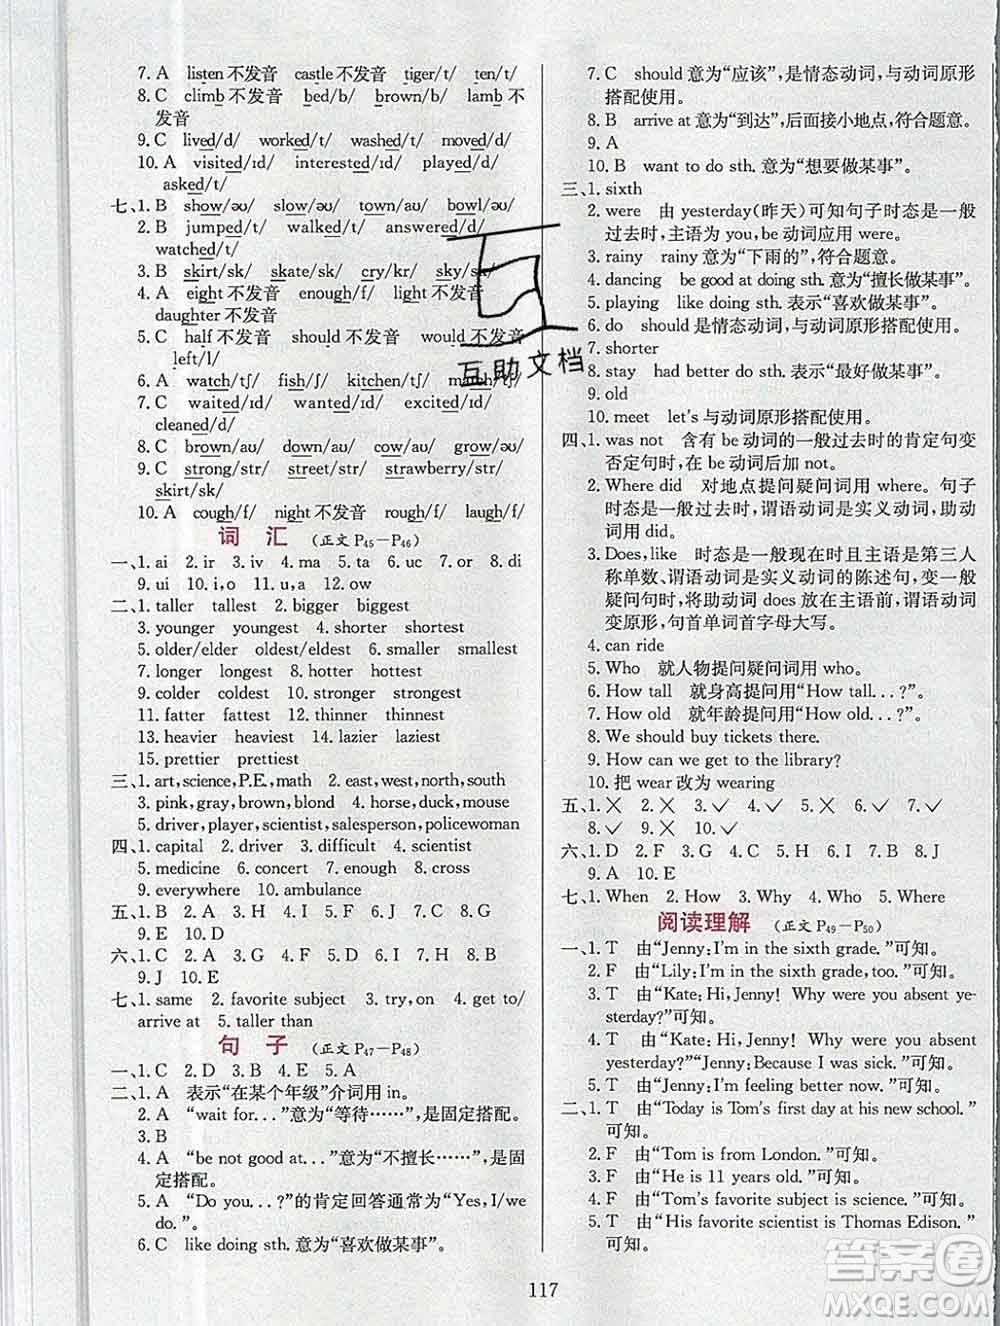 7. A　listen 不发音　castle 不发音　tiger/t/　ten/t/
8. C　climb 不发音　bed/b/　brown/b/　lamb 不
发音
9. C　lived/d/　worked/t/　washed/t/　moved/d/
10. A　visited/ɪd/　interested/ɪd/　played/d/
asked/t/
七、1. B　show/əʊ/　slow/əʊ/　town/aʊ/　bowl/əʊ/
2. B　jumped/t/　walked/t/　answered/d/
watched/t/
3. B　skirt/sk/　skate/sk/　cry/kr/　sky/sk/
4. A　eight 不发音　enough/f/　light 不发音
daughter 不发音
5. C　half 不发音　should 不发音　would 不发音
left/l/
6. A　watch/tʃ/　fish/ʃ/　kitchen/tʃ/　match/tʃ/
7. C　waited/ɪd/　wanted/ɪd/　excited/ɪd/
cleaned/d/
8. C　brown/aʊ/　down/aʊ/　cow/aʊ/　grow/əʊ/
9. C　strong/str/　street/str/　strawberry/str/
skirt/sk/
10. A　cough/f/　night 不发音　rough/f/　laugh/f/
词　汇　(正文 P45－P46)
一、1. ai　2. ir　3. iv　4. ma　5. ta　6. uc　7. or　8. en
9. ui　10. i,o　11. u　12. ow
二、1. taller　tallest　2. bigger　biggest
3. younger　youngest　4. shorter　shortest
5. older/elder　oldest/eldest　6. smaller　smallest
7. longer　longest　8. hotter　hottest
9. colder　coldest　10. stronger　strongest
11. fatter　fattest　12. thinner　thinnest
13. heavier　heaviest　14. lazier　laziest
15. prettier　prettiest
三、1. art,science,P.E.,math　2. east,west,north,south
3. pink,gray,brown,blond　4. horse,duck,mouse
5. driver,player,scientist,salesperson,policewoman
四、1. capital　2. driver　3. difficult　4. scientist
5. medicine　6. concert　7. enough　8. cross
9. everywhere　10. ambulance
五、1. B　2. A　3. H　4. I　5. J　6. F　7. C　8. G
9. E　10. D
六、1. C　2. A　3. G　4. B　5. I　6. D　7. F　8. H
9. J　10. E
七、1. same　2. favorite subject　3. try,on　4. get to/
arrive at　5. taller than
句　子　(正文 P47－P48)
一、1. C　2. D　3. B　4. E　5. A
二、1. A　表示“在某个年级”介词用 in。
2. A　“wait for. . .”意为“等待……”,是固定搭配。
3. B
4. A　“be not good at. . .”意为“不擅长……”,是固
定搭配。
5. A　“Do you. . .?”的肯定回答通常为“Yes,I/we
do.”。
6. C　like doing sth. 意为“喜欢做某事”。
7. C　should 意为“应该”,是情态动词,与动词原形
搭配使用。
8. B　arrive at 意为“到达”,后面接小地点,符合题意。
9. A
10. B　want to do sth. 意为“想要做某事”。
三、1. sixth
2. were　由 yesterday(昨天)可知句子时态是一般
过去时,主语为 you,be 动词应用 were。
3. rainy　rainy 意为“下雨的”,符合题意。
4. dancing　be good at doing sth. 意为“擅长做某事”。
5. playing　like doing sth. 表示“喜欢做某事”。
6. do　should 是情态动词,与动词原形搭配使用。
7. shorter
8. stay　had better do sth. 表示“最好做某事”。
9. old
10. meet　let's 与动词原形搭配使用。
四、1. was not　含有 be 动词的一般过去时的肯定句变
否定句时,在 be 动词后加 not。
2. Where did　对地点提问疑问词用 where。句子
时态为一般过去时,谓语动词是实义动词,助动
词用 did。
3. Does,like　时态是一般现在时且主语是第三人
称单数、谓语动词是实义动词的陈述句,变一般
疑问句时,将助动词 does 放在主语前,谓语动词
变原形,句首单词首字母大写。
4. can ride
5. Who　就人物提问疑问词用 who。
6. How tall　就身高提问用“How tall. . .?”。
7. How old　就年龄提问用“How old. . .?”。
8. We should buy tickets there.
9. How can we get to the library?
10. 把 wear 改为 wearing
五、1. ╳　2. ╳　3. ✓　4. ✓　5. ╳　6. ✓　7. ✓
8. ✓　9. ╳　10. ✓
六、1. D　2. F　3. G　4. I　5. H　6. C　7. B　8. J
9. A　10. E
七、1. When　2. How　3. Why　4. Who　5. Where
阅读理解　(正文 P49－P50)
一、1. T　由“Jenny:I'm in the sixth grade.”可知。
2. F　由“Lily:I'm in the sixth grade,too.”可知。
3. T　由“Kate:Hi,Jenny! Why were you absent ye-
sterday?”可知。
4. T　由“Kate:Hi,Jenny! Why were you absent
yesterday?”“Jenny:Because I was sick.”可知。
5. T　由“Jenny:I'm feeling better now.”可知。
二、1. T　由“Today is Tom's first day at his new school.”
可知。
2. F　由“Tom is from London.”可知。
3. F　由“He is 11 years old.”可知。
4. F　由“Tom's favorite subject is science.”可知。
5. T　由“His favorite scientist is Thomas Edison.”
可知。
117
互助文档
答案圈
MXQE.COM